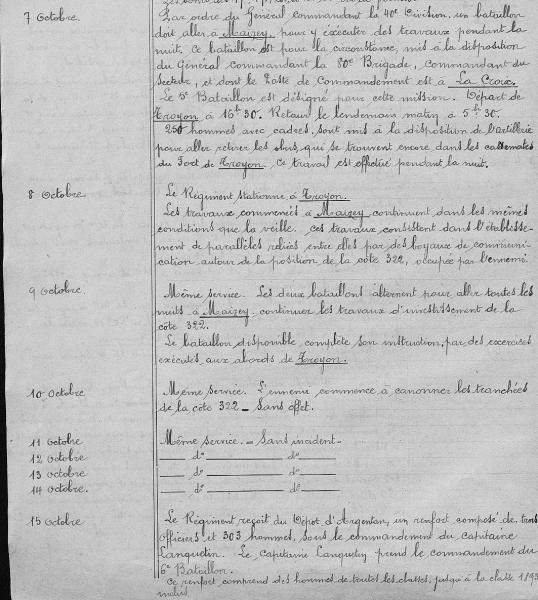 7 Octobre. Par ordre du Général commandant la 40e Division, un bataillon
doit aller à Maizey, pour y exécuter des travaux pendant la
nuit. Ce bataillon est pour la circonstance, mis à la disposition
du Général commandant la 80e Brigade, commandant du
secteur, et dont le Poste de Commandement est à La Croix.
Le 5e Bataillon est désigné pour cette mission. Départ de
Troyon à 16h 30. Retour le lendemain matin à 5h 30.
250 hommes avec cadres, sont mis à la disposition de l'artillerie
pour aller retirer les obus, qui se trouvent encore dans les casemates
du Fort de Troyon. Ce travail est effectué pendant la nuit.
8 Octobre. Le Régiment stationne à Troyon.
Les travaux commencés à Maizey continuent dans les mêmes
conditions que la veille. Ces travaux consistent dans l'établisse-
ment de parallèles reliées entre elles par des boyaux de communi-
cation autour de la position de la côte 322, occupée par l'ennemi
9 Octobre. Même service. Les deux bataillons alternent pour aller toutes les
nuits à Maizey, continuer les travaux d'investissement de la
côte 322.
Le bataillon disponible complète son instruction, par des exercices
exécutés aux abords de Troyon.
10 Octobre Même service. L'ennemi commence à canonner les tranchées
de la côte 322 _ Sans effet.
11 Octobre Même service. _ Sans incident _
12 Octobre do do
13 Octobre do do
14 Octobre. do do
15 Octobre Le Régiment reçoit du Dépôt d'Argentan, un renfort composé de trois
officiers et 303 hommes, sous le commandement du capitaine
Languetin. Le capitaine Languetin prend le commandement du
6e Bataillon.
Ce renfort comprend des hommes de toutes les classes, jusqu'à la classe 1893